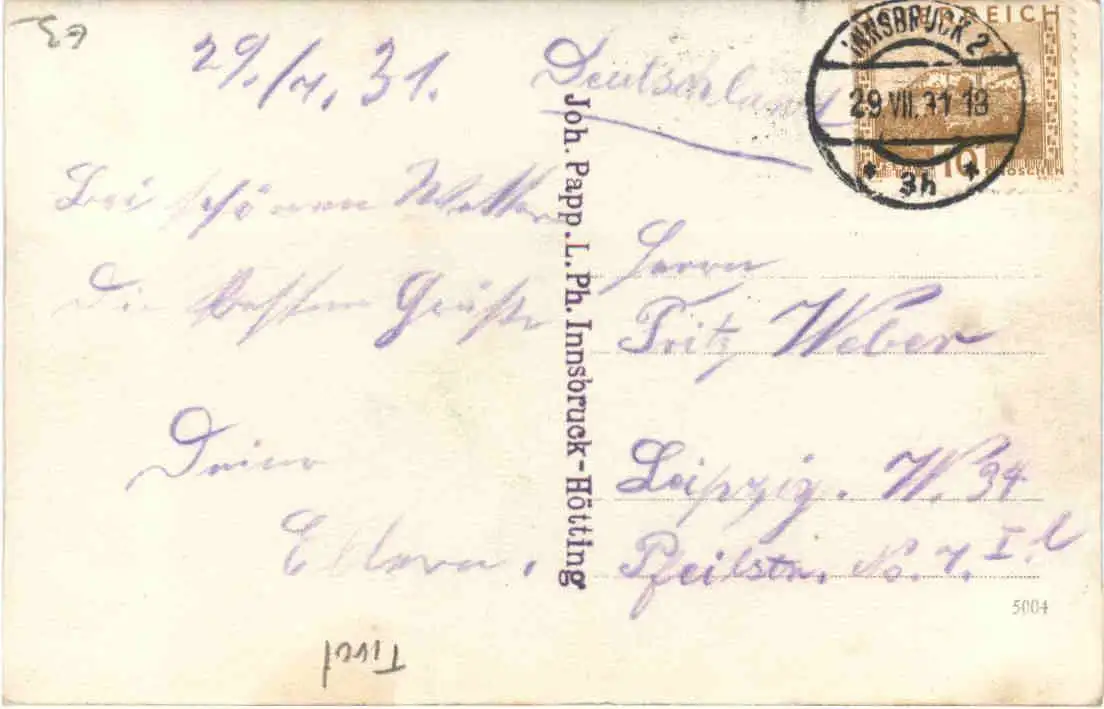 29./7. 31.
Bei schönem Wetter
Die besten Grüße
Deine
Eltern.
Tirol
Joh. Papp. L. Ph. Innsbruck-Hötting
Deutschland
ÖSTERREICH
10 GROSCHEN
INNSBRUCK 2
29.VII.31 18
* 3h *
Herrn
Fritz Weber
Leipzig. W. 34
Pfeilstr. No. 7. I. l
5004